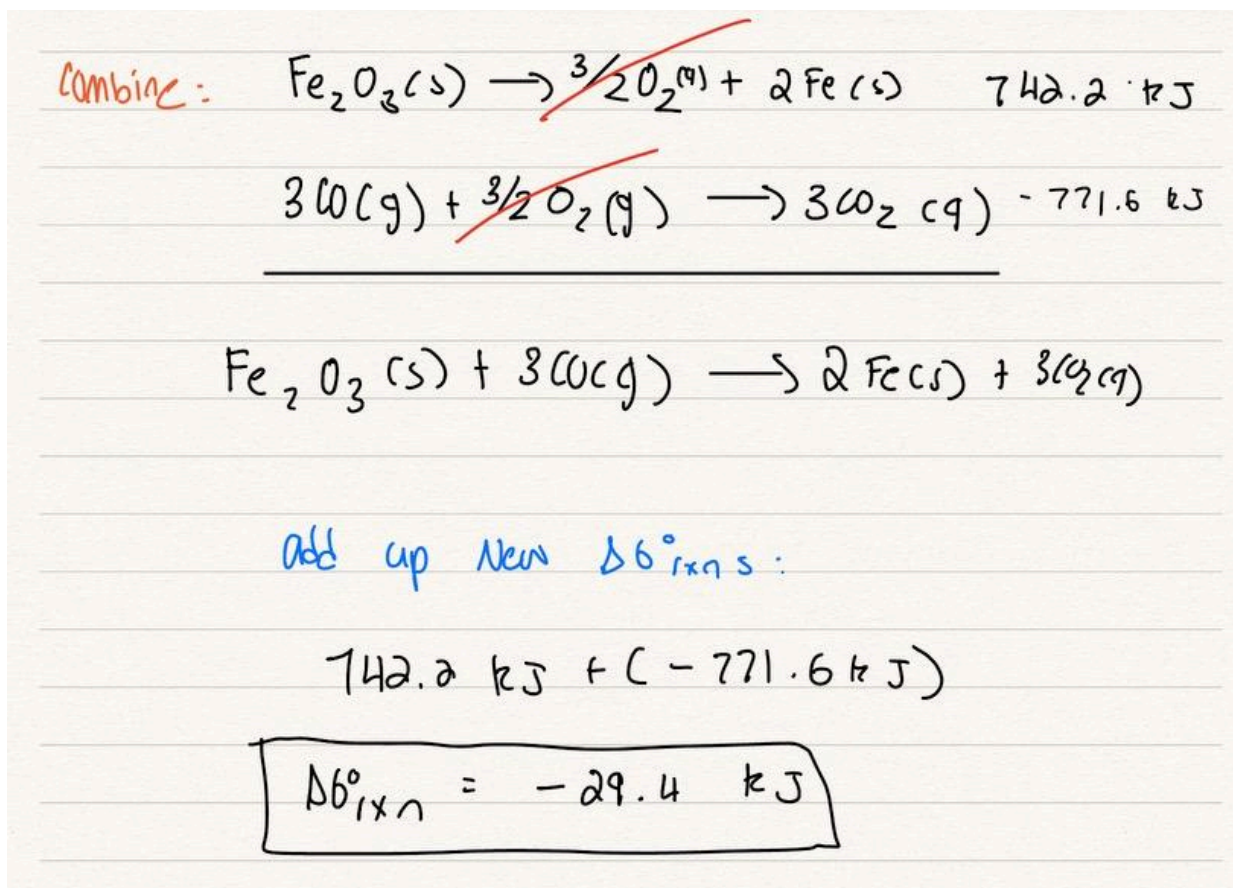 Combine: Fe₂O₃(s) → 3/2O₂(g) + 2Fe(s) 742.2 kJ
3CO(g) + 3/2O₂(g) → 3CO₂(g) -771.6 kJ
Fe₂O₃(s) + 3CO(g) → 2Fe(s) + 3CO₂(g)
add up New ΔG°rxns:
742.2 kJ + (-771.6 kJ)
ΔG°rxn = -29.4 kJ